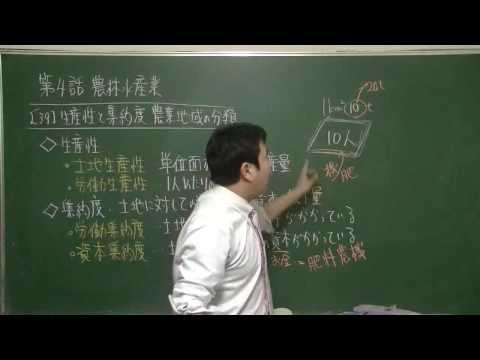 第4話 農林水産業
[39]生産性と集約度 農業地域の分類
◇生産性
・土地生産性 単位面 産量
・労働生産性 1人あたり
◇集約度・土地に対して 量
・労働集約度 ・土地 かかっている
・資本集約度 ・土 資本がかかっている
お金=肥料農機
20t
1km² 10t
10人
機 肥